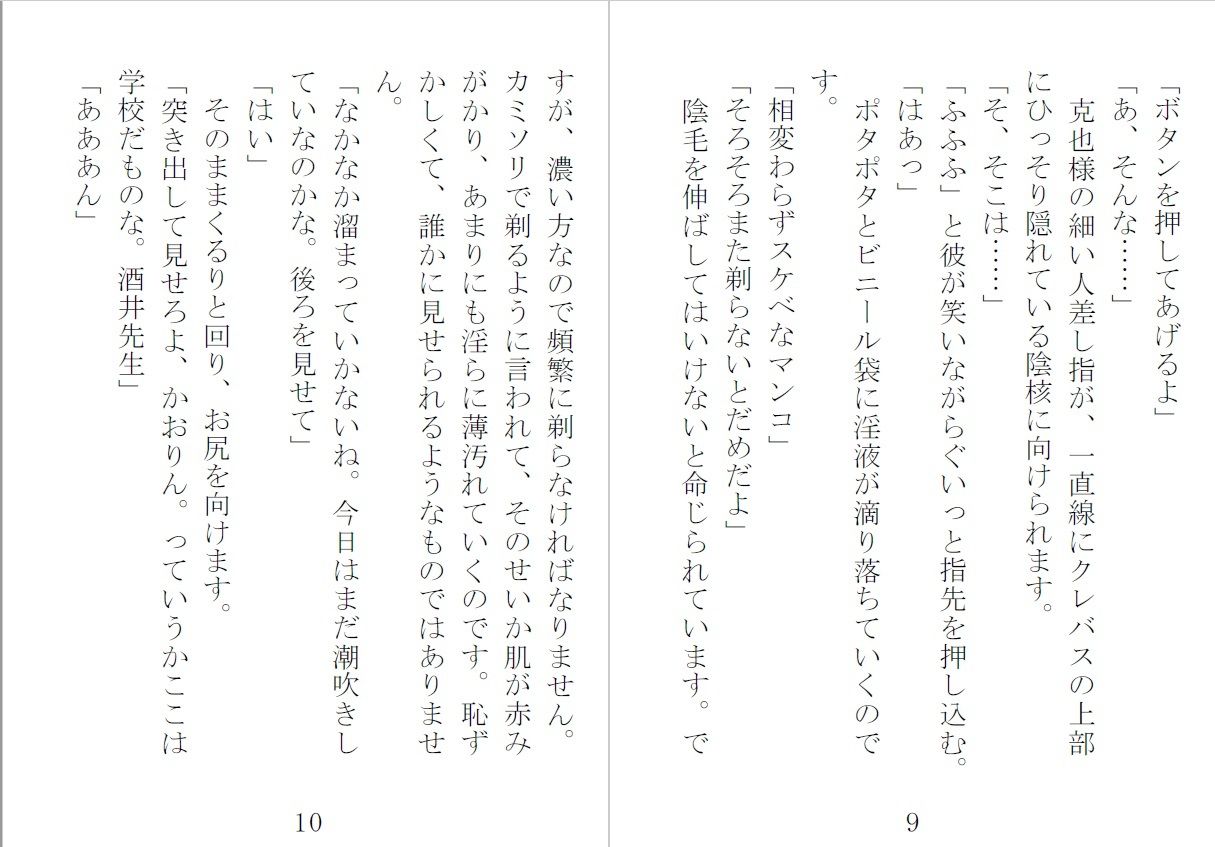 「ボタンを押してあげるよ」
「あ、そんな……」
克也様の細い人差し指が、一直線にクレバスの上部
にひっそり隠れている陰核に向けられます。
「そ、そこは……」
「ふふふ」と彼が笑いながらぐいっと指先を押し込む。
「はあっ」
ポタポタとビニール袋に淫液が滴り落ちていくので
す。
「相変わらずスケベなマンコ」
「そろそろまた剃らないとだめだよ」
陰毛を伸ばしてはいけないと命じられています。で
9
すが、濃い方なので頻繁に剃らなければなりません。
カミソリで剃るように言われて、そのせいか肌が赤み
がかり、あまりにも淫らに薄汚れていくのです。恥ず
かしくて、誰かに見せられるようなものではありませ
ん。
「なかなか溜まっていかないね。今日はまだ潮吹きし
ていなのかな。後ろを見せて」
「はい」
そのままくるりと回り、お尻を向けます。
「突き出して見せろよ、かおりん。っていうかここは
学校だものな。酒井先生」
「あああん」
10